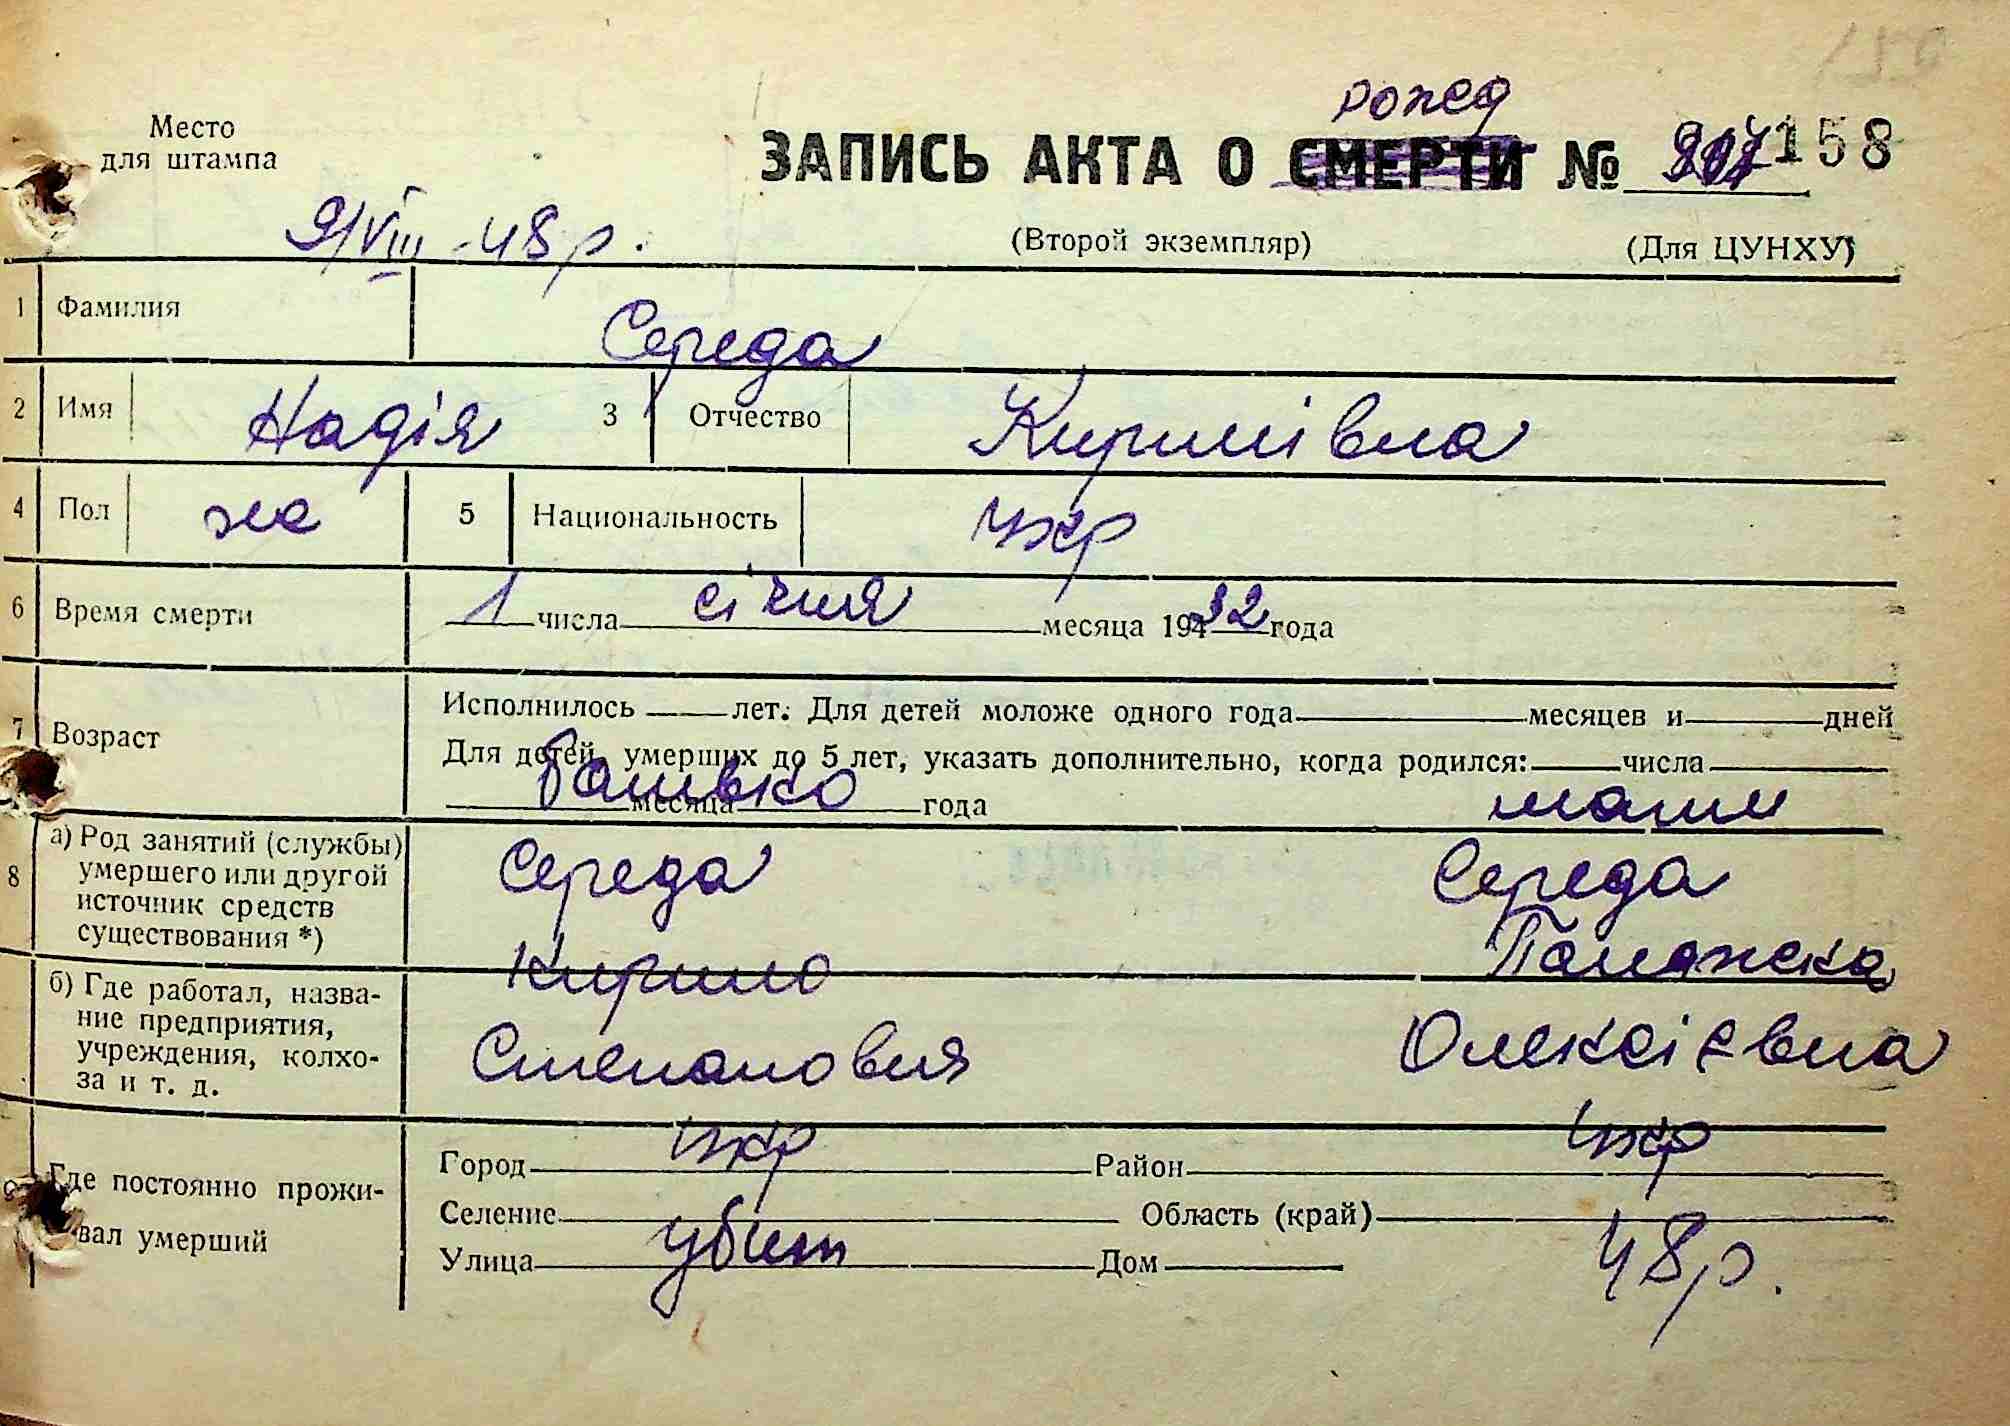 рожд
Место
для штампа
ЗАПИСЬ АКТА О СМЕРТИ № 158
9/VIII - 48 р.
(Второй экземпляр) (Для ЦУНХУ)
1 Фамилия Середа
2 Имя Надія 3 Отчество Кирилівна
4 Пол ж 5 Национальность укр
6 Время смерти 1 числа січня месяца 194 32 года
7 Возраст Исполнилось лет. Для детей моложе одного года месяцев и дней
Для детей, умерших до 5 лет, указать дополнительно, когда родился: числа
месяца года
Батько мати
8 а) Род занятий (службы)
умершего или другой
источник средств
существования *)
Середа Середа
Кирило
б) Где работал, назва-
ние предприятия,
учреждения, колхо-
за и т. д.
Степанович Олексієвна
укр укр
Где постоянно прожи-
вал умерший
Город Район
Селение Область (край)
Улица Дом
убит 48 р.